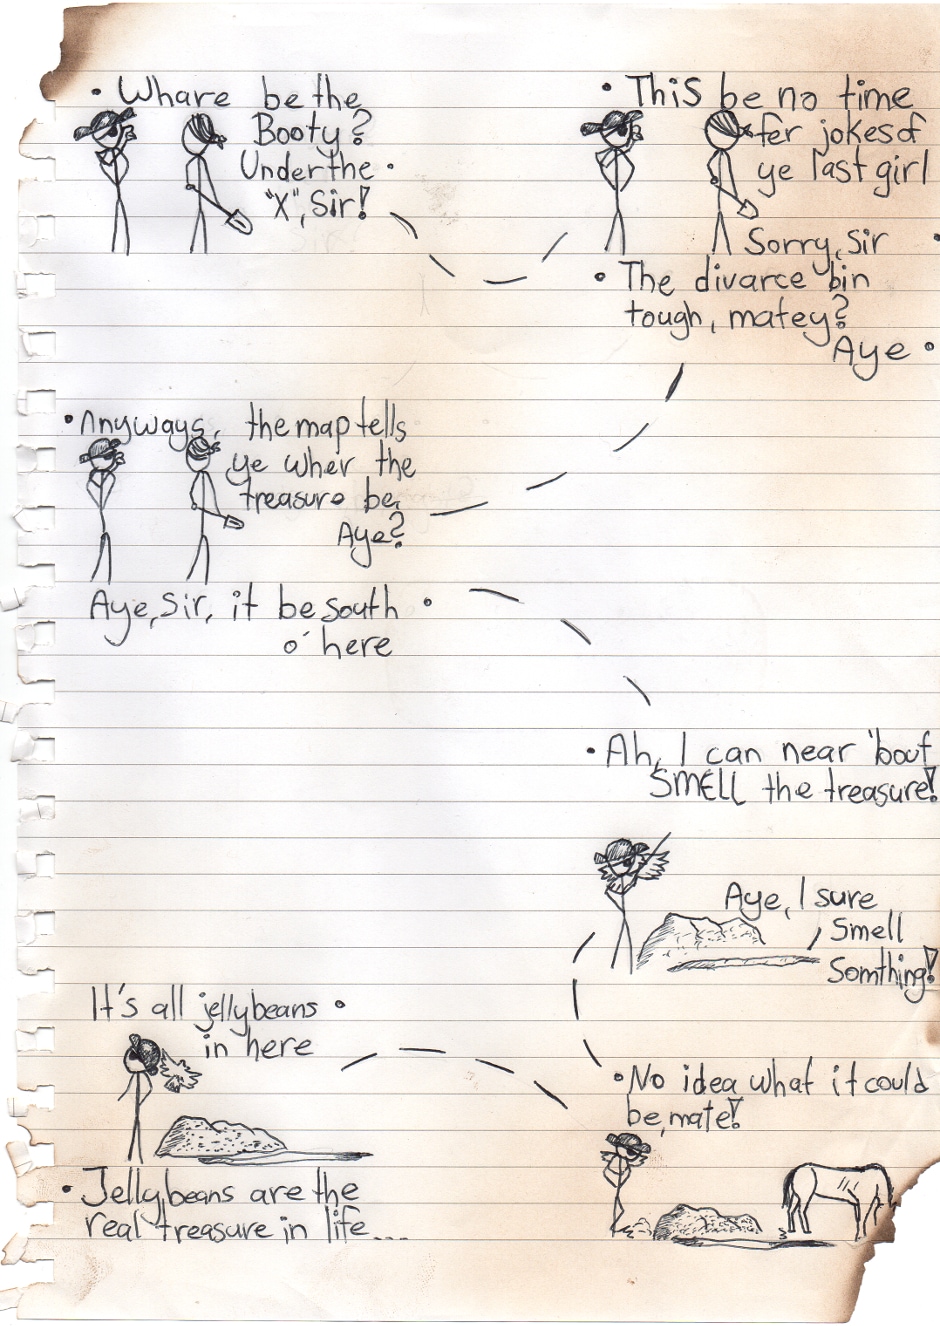 • Whare be the
Booty?
Under the •
"X", Sir!
• This be no time
fer jokes of
ye last girl
Sorry, Sir •
• The divarce bin
tough, matey?
Aye •
• Anyways, the map tells
ye wher the
treasure be,
Aye?
Aye, Sir, it be south •
o' here
• Ah, I can near 'bout
SMELL the treasure!
Aye, I sure
Smell
Somthing!
• No idea what it could
be, mate!
It's all jellybeans •
in here
• Jellybeans are the
real treasure in life...